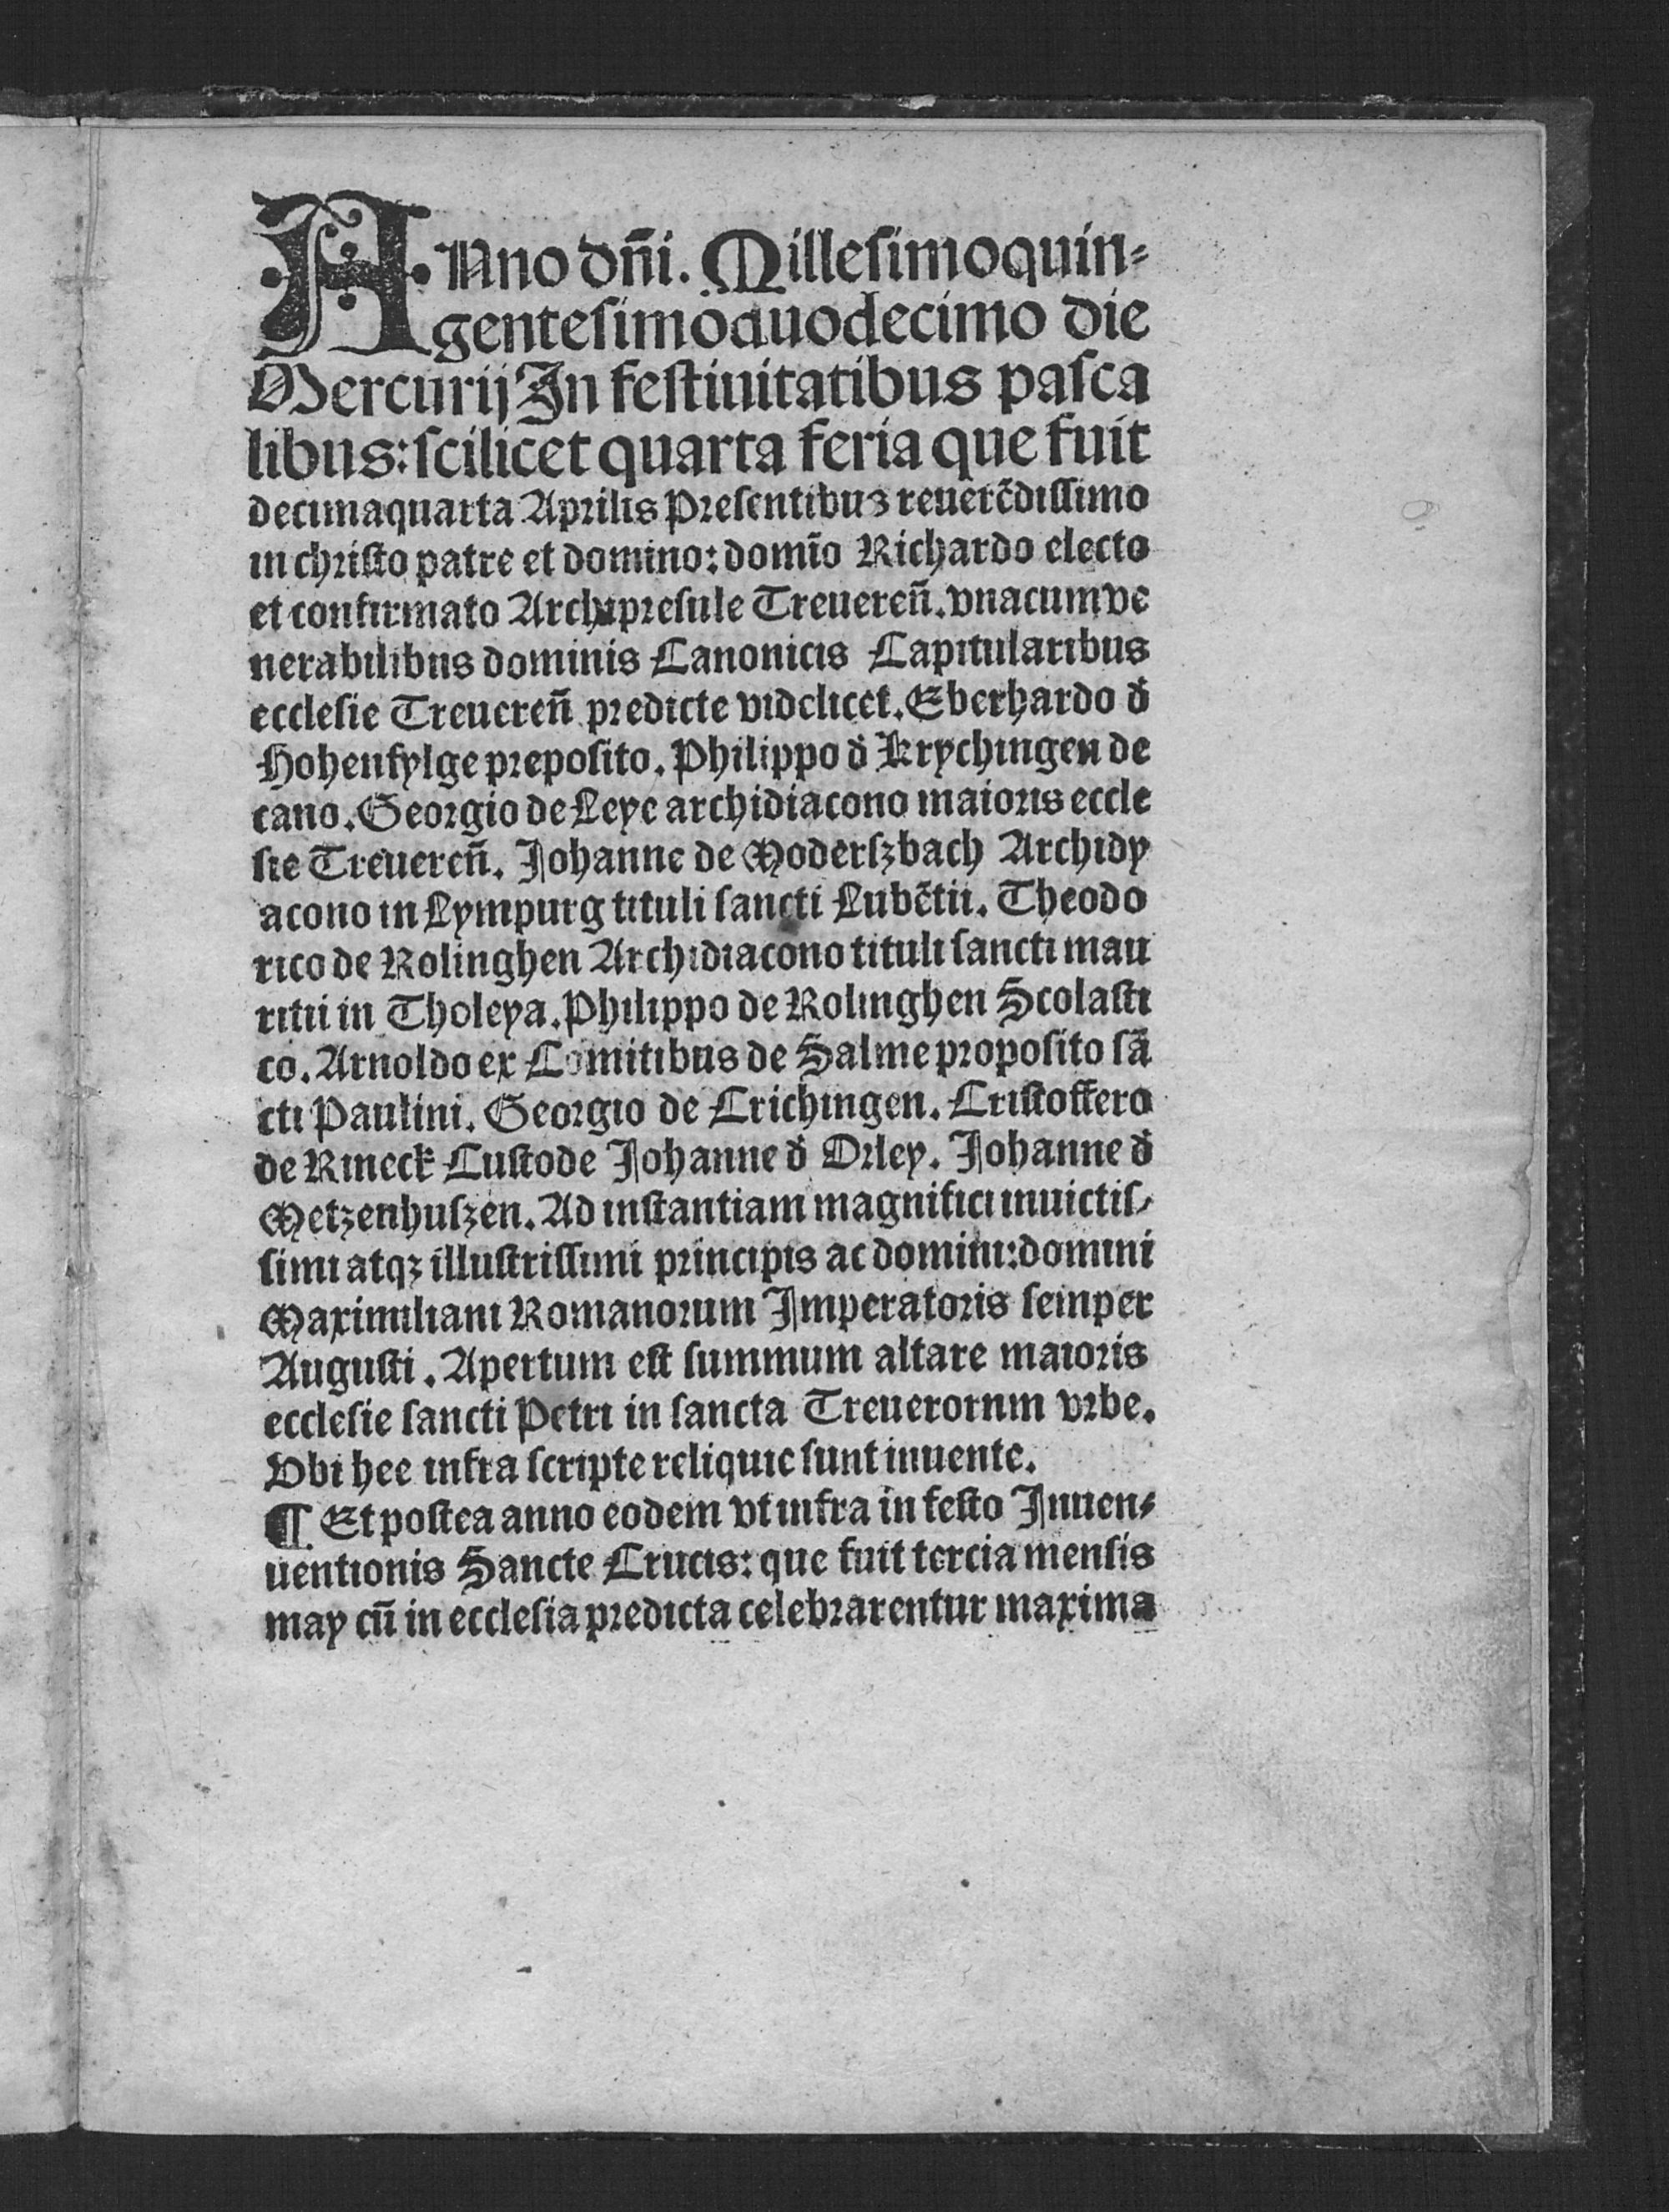 ANno dn̄i. Milleſimoquin⸗
genteſimoduodecimo die
Mercurij In feſtiuitatibus paſca
libus: ſcilicet quarta feria que fuit
decimaquarta Aprilis Preſentibuꝫ reuerēdiſſimo
in chriſto patre et domino: domīo Richardo electo
et confirmato Archipreſule Treueren̄. vnacum ve
nerabilibus dominis Canonicis Capitularibus
eccleſie Treueren̄ predicte videlicet. Eberhardo d̄
Hohenfylge prepoſito. Philippo d̄ Krychingen de
cano. Georgio de Leye archidiacono maioris eccle
ſie Treueren̄. Johanne de Moderſzbach Archidy
acono in Lympurg tituli ſancti Lubētii. Theodo
rico de Rolinghen Archidiacono tituli ſancti mau
ritii in Tholeya. Philippo de Rolinghen Scolaſti
co. Arnoldo ex Comitibus de Salme propoſito ſā
cti Paulini. Georgio de Crichingen. Criſtoffero
de Rineck Cuſtode Johanne d̄ Orley. Johanne d̄
Metzenhuſzen. Ad inſtantiam magnifici inuictiſ⸗
ſimi atqꝫ illuſtriſſimi principis ac domini: domini
Maximiliani Romanorum Imperatoris ſemper
Auguſti. Apertum eſt ſummum altare maioris
eccleſie ſancti Petri in ſancta Treuerornm vrbe.
Vbi hee infra ſcripte reliquie ſunt inuente.
¶ Et poſtea anno eodem vt infra in feſto Inuen⸗
uentionis Sancte Crucis: que fuit tercia menſis
may cū in eccleſia predicta celebrarentur maxima